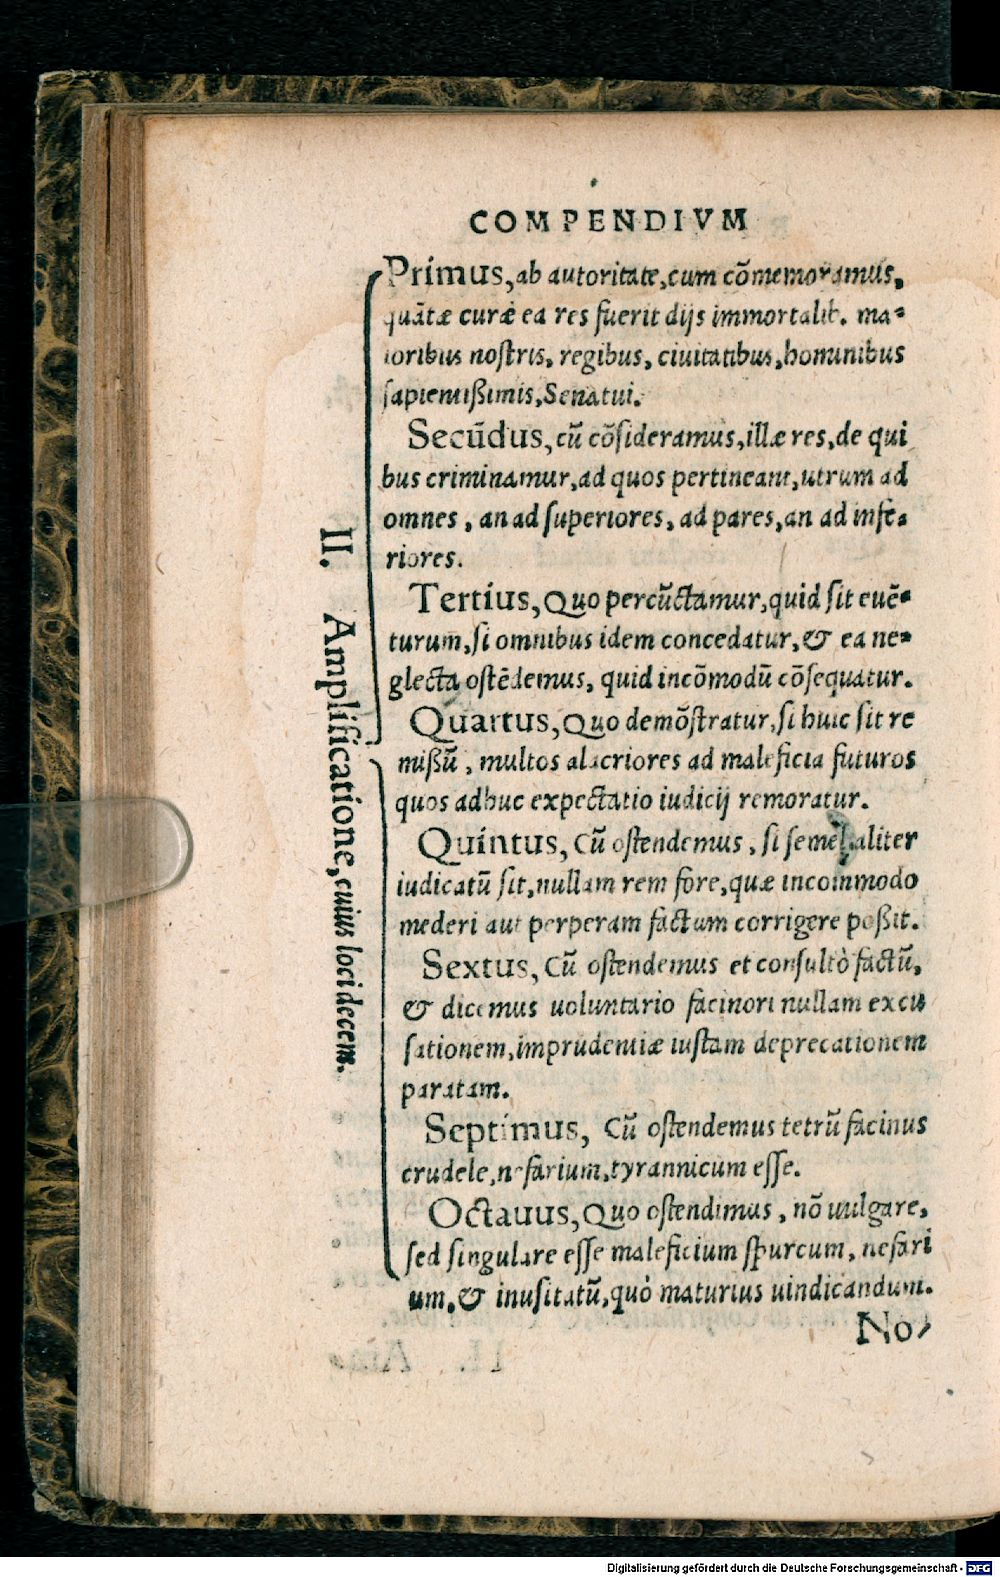 COMPENDIVM
II. Amplificatione, cuius loci decem.
Primus, ab autoritate, cum cõmemoramus,
quãtæ curæ ea res fuerit dijs immortalib. ma⸗
ioribus nostris, regibus, ciuitatibus, hominibus
sapientißimis, Senatui.
Secũdus, cũ cõsideramus, illæ res, de qui
bus criminamur, ad quos pertineant, utrum ad
omnes, an ad superiores, ad pares, an ad infe⸗
riores.
Tertius, Quo percũctamur, quid sit euẽ⸗
turum, si omnibus idem concedatur, & ea ne⸗
glecta ostẽdemus, quid incõmodũ cõsequatur.
Quartus, Quo demõstratur, si huic sit re
mißũ, multos alacriores ad maleficia futuros
quos adhuc expectatio iudicij remoratur.
Quintus, Cũ ostendemus, si semel aliter
iudicatũ sit, nullam rem fore, quæ incommodo
mederi aut perperam factum corrigere poßit.
Sextus, Cũ ostendemus et consultò factũ,
& dicemus uoluntario facinori nullam excu
sationem, imprudentiæ iustam deprecationem
paratam.
Septimus, Cũ ostendemus tetrũ facinus
crudele, nefarium, tyrannicum esse.
Octauus, Quo ostendimus, nõ uulgare,
sed singulare esse maleficium spurcum, nefari
um, & inusitatũ, quò maturius uindicandum.
No-
Digitalisierung gefördert durch die Deutsche Forschungsgemeinschaft - DFG